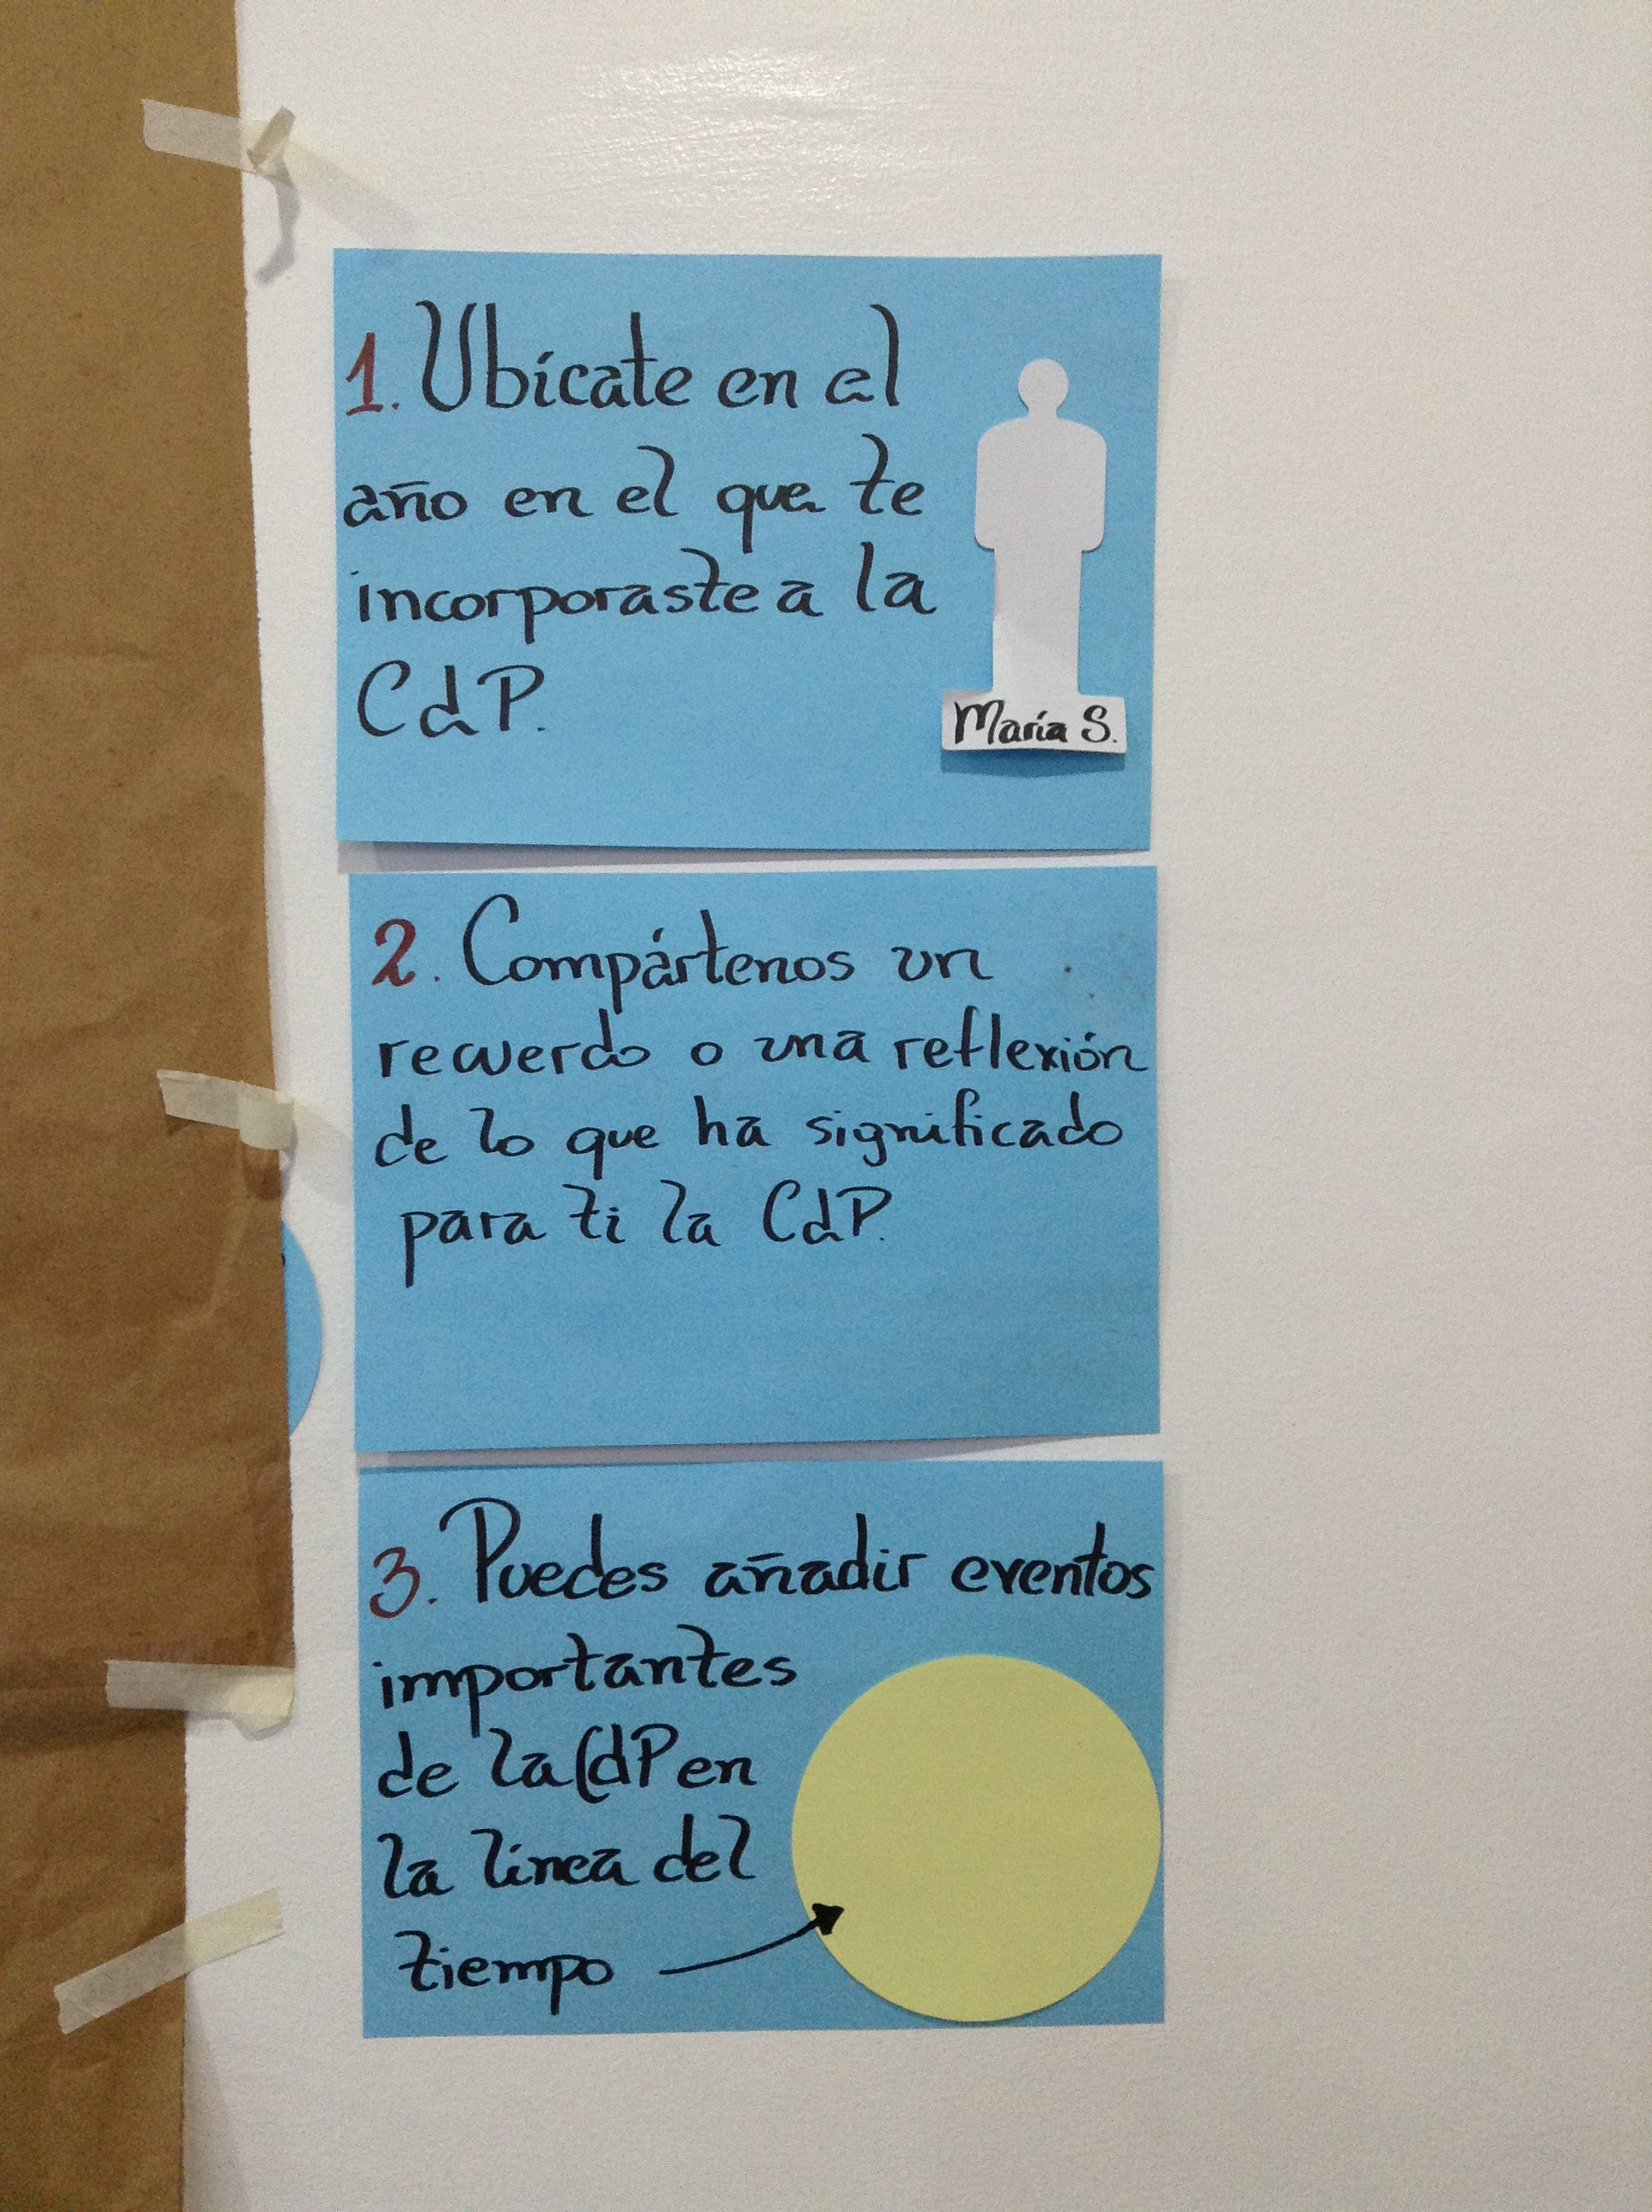 1. Ubícate en el
año en el que te
incorporaste a la
CdP.
María S.
2. Compártenos un
recuerdo o una reflexión
de lo que ha significado
para ti la CdP.
3. Puedes añadir eventos
importantes
de la CdP en
la línea del
tiempo